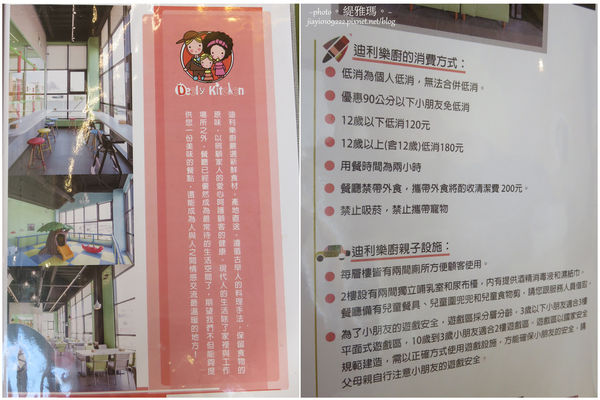 Daily Kitchen
迪利樂廚嚴選新鮮食材，產地直送，遵循古早人的料理手法，保留食物的
原味，以照顧家人的愛心呵護顧客的健康。現代人的生活除了家裡與工作
場所之外，餐廳已經儼然成為最常待的生活空間了，期望我們不但能夠提
供您一份美味的餐點，還能成為人與人之間情感交流最溫暖的地方！
-photo。緹雅瑪。-
jiayiono9222.pixnet.net/blog
迪利樂廚的消費方式：
低消為個人低消，無法合併低消。
優惠90公分以下小朋友免低消
12歲以下低消120元
12歲以上(含12歲)低消180元
用餐時間為兩小時
餐廳禁帶外食，攜帶外食將酌收清潔費 200元。
禁止吸菸，禁止攜帶寵物
迪利樂廚親子設施：
每層樓皆有兩間廁所方便顧客使用。
2樓設有兩間獨立哺乳室和尿布檯，內有提供酒精消毒液和濕紙巾。
餐廳備有兒童餐具、兒童圍兜和兒童食物剪，請您跟服務人員借取
為了小朋友的遊戲安全，遊戲區採分層分齡。3歲以下小朋友適合3樓
平面式遊戲區，10歲到3歲小朋友適合2樓遊戲區。遊戲區以國家安全
規範建造，需以正確方式使用遊戲設施，方能確保小朋友的安全，請
父母親自行注意小朋友的遊戲安全。